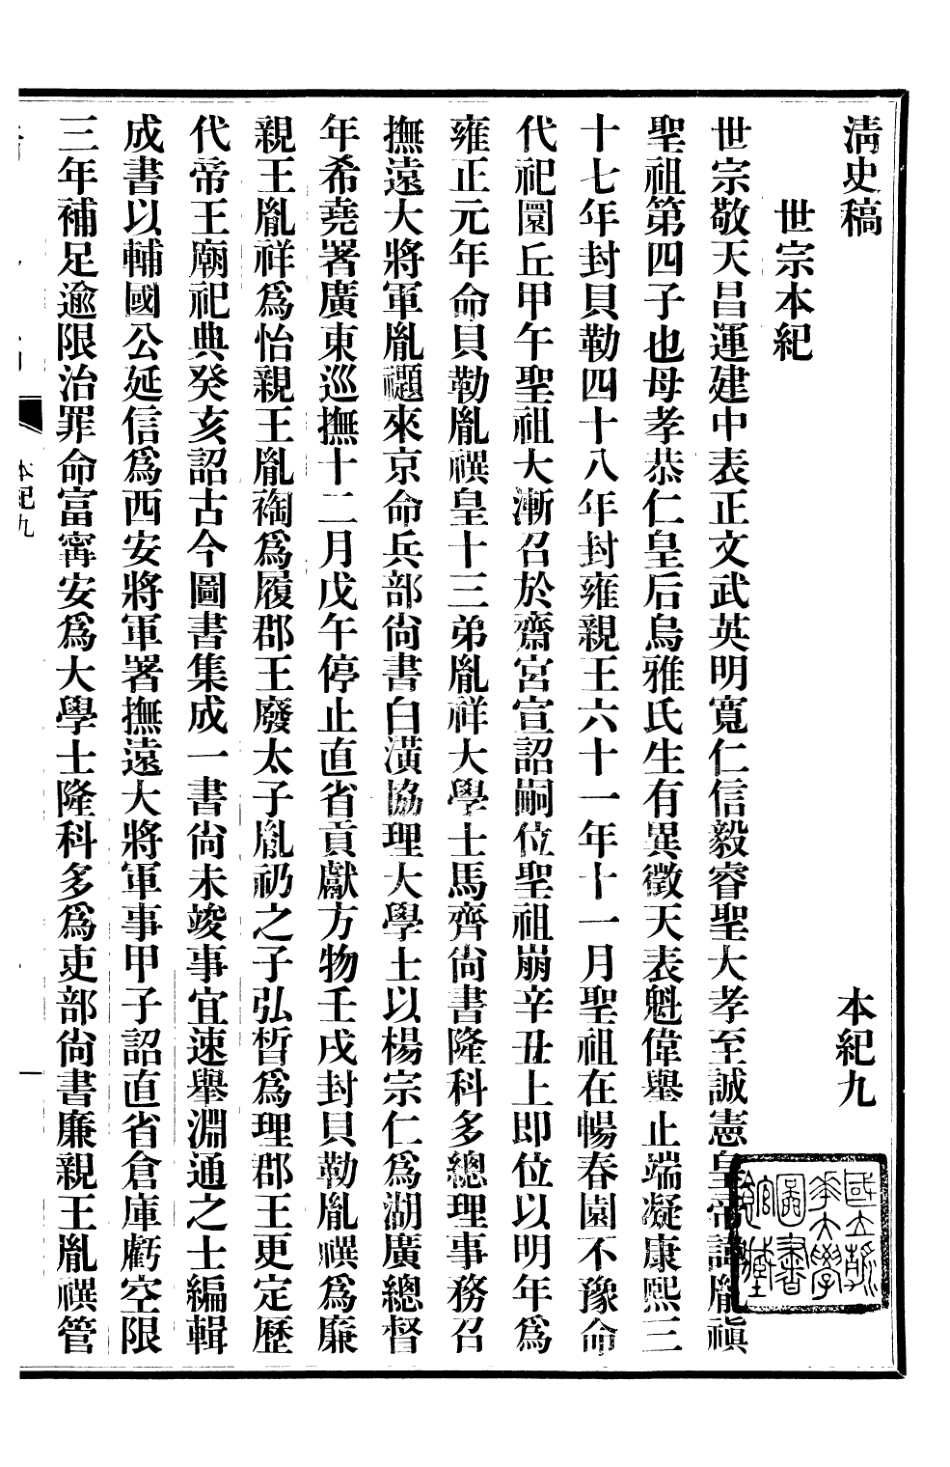 清史稿 本紀九
世宗本紀
世宗敬天昌運建中表正文武英明寬仁信毅睿聖大孝至誠憲皇帝諱胤禛
聖祖第四子也母孝恭仁皇后烏雅氏生有異徵天表魁偉舉止端凝康熙三
十七年封貝勒四十八年封雍親王六十一年十一月聖祖在暢春園不豫命
代祀圜丘甲午聖祖大漸召於齋宮宣詔嗣位聖祖崩辛丑上即位以明年為
雍正元年命貝勒胤禩皇十三弟胤祥大學士馬齊尚書隆科多總理事務召
撫遠大將軍胤禵來京命兵部尚書白潢協理大學士以楊宗仁為湖廣總督
年希堯署廣東巡撫十二月戊午停止直省貢獻方物壬戌封貝勒胤禩為廉
親王胤祥為怡親王胤祹為履郡王廢太子胤礽之子弘晳為理郡王更定歷
代帝王廟祀典癸亥詔古今圖書集成一書尚未竣事宜速舉淵通之士編輯
成書以輔國公延信為西安將軍署撫遠大將軍事甲子詔直省倉庫虧空限
三年補足逾限治罪命富甯安為大學士隆科多為吏部尚書廉親王胤禩管
本紀九
一
國立清華大學圖書館藏